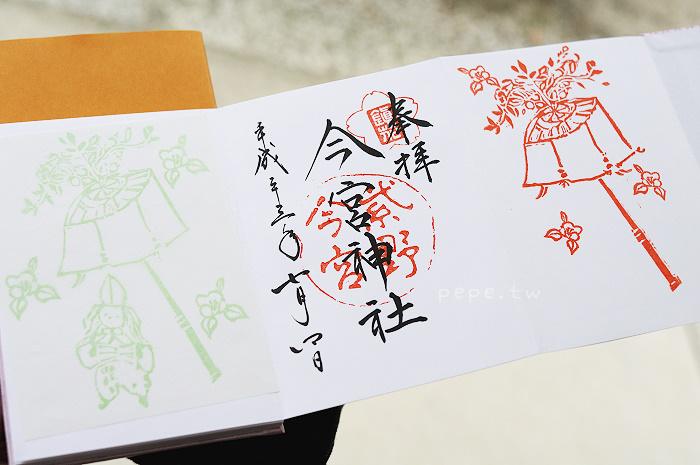 奉拝
今宮神社
紫野
今宮
平成二十三年十月四日
pepe.tw